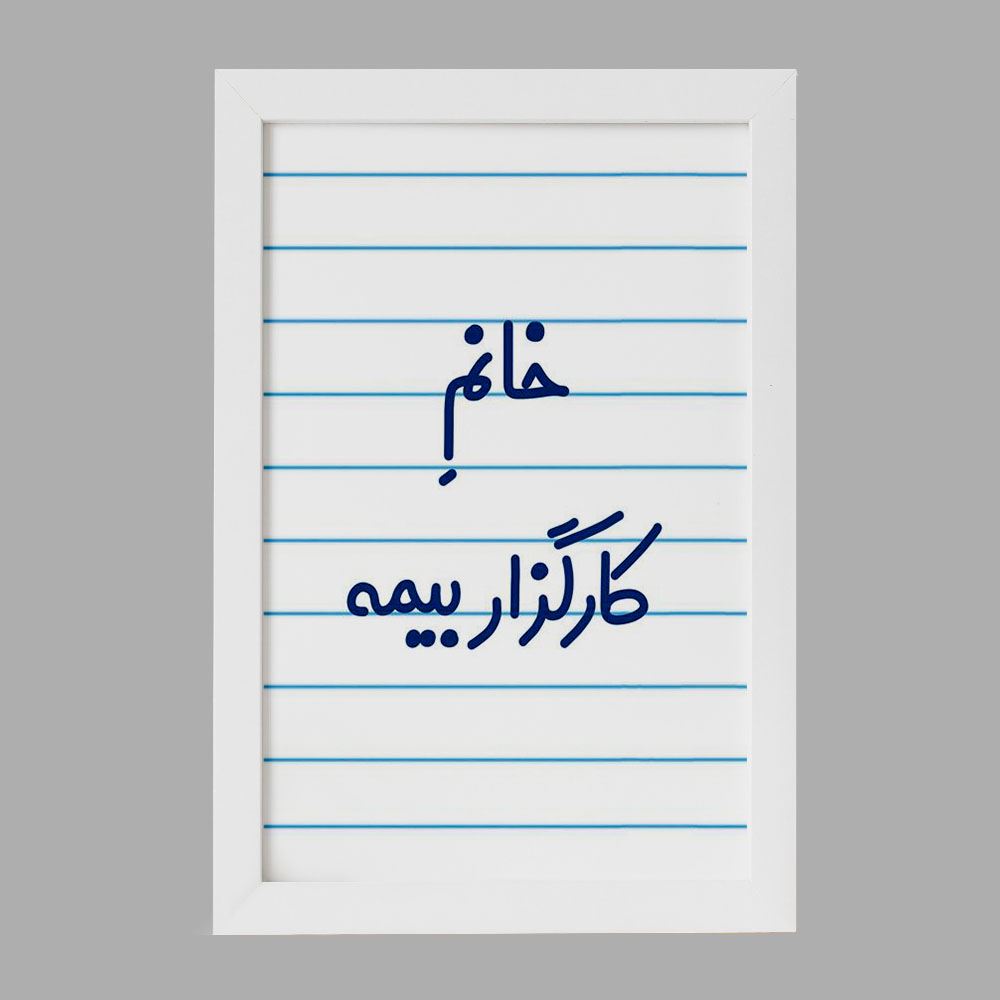 خانمِ
کارگزار بیمه